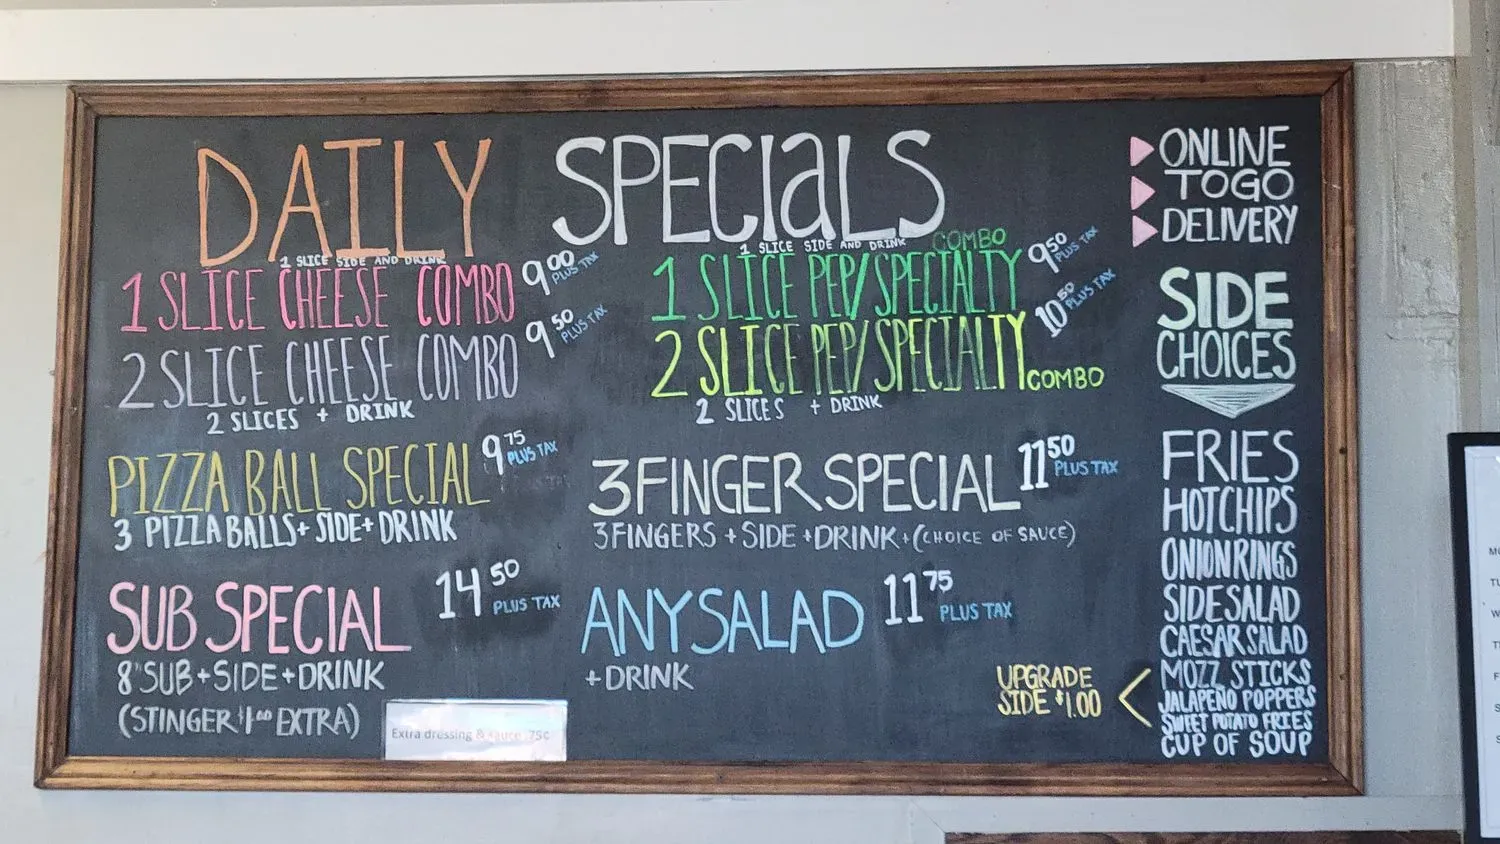 DAILY SPECIALS
1 SLICE SIDE AND DRINK
1 SLICE CHEESE COMBO 9.00 PLUS TAX
2 SLICE CHEESE COMBO 9.50 PLUS TAX
2 SLICES + DRINK
1 SLICE SIDE AND DRINK
1 SLICE PEP/SPECIALTY COMBO 9.50 PLUS TAX
2 SLICE PEP/SPECIALTY COMBO 10.50 PLUS TAX
2 SLICES + DRINK
PIZZA BALL SPECIAL 9.75 PLUS TAX
3 PIZZA BALLS + SIDE + DRINK
3 FINGER SPECIAL 11.50 PLUS TAX
3 FINGERS + SIDE + DRINK + (CHOICE OF SAUCE)
SUB SPECIAL 14.50 PLUS TAX
8" SUB + SIDE + DRINK
(STINGER $1.00 EXTRA)
Extra dressing & sauce .75¢
ANY SALAD 11.75 PLUS TAX
+ DRINK
ONLINE
TO GO
DELIVERY
SIDE
CHOICES
FRIES
HOT CHIPS
ONION RINGS
SIDE SALAD
CAESAR SALAD
MOZZ STICKS
JALAPEÑO POPPERS
SWEET POTATO FRIES
CUP OF SOUP
UPGRADE
SIDE $1.00